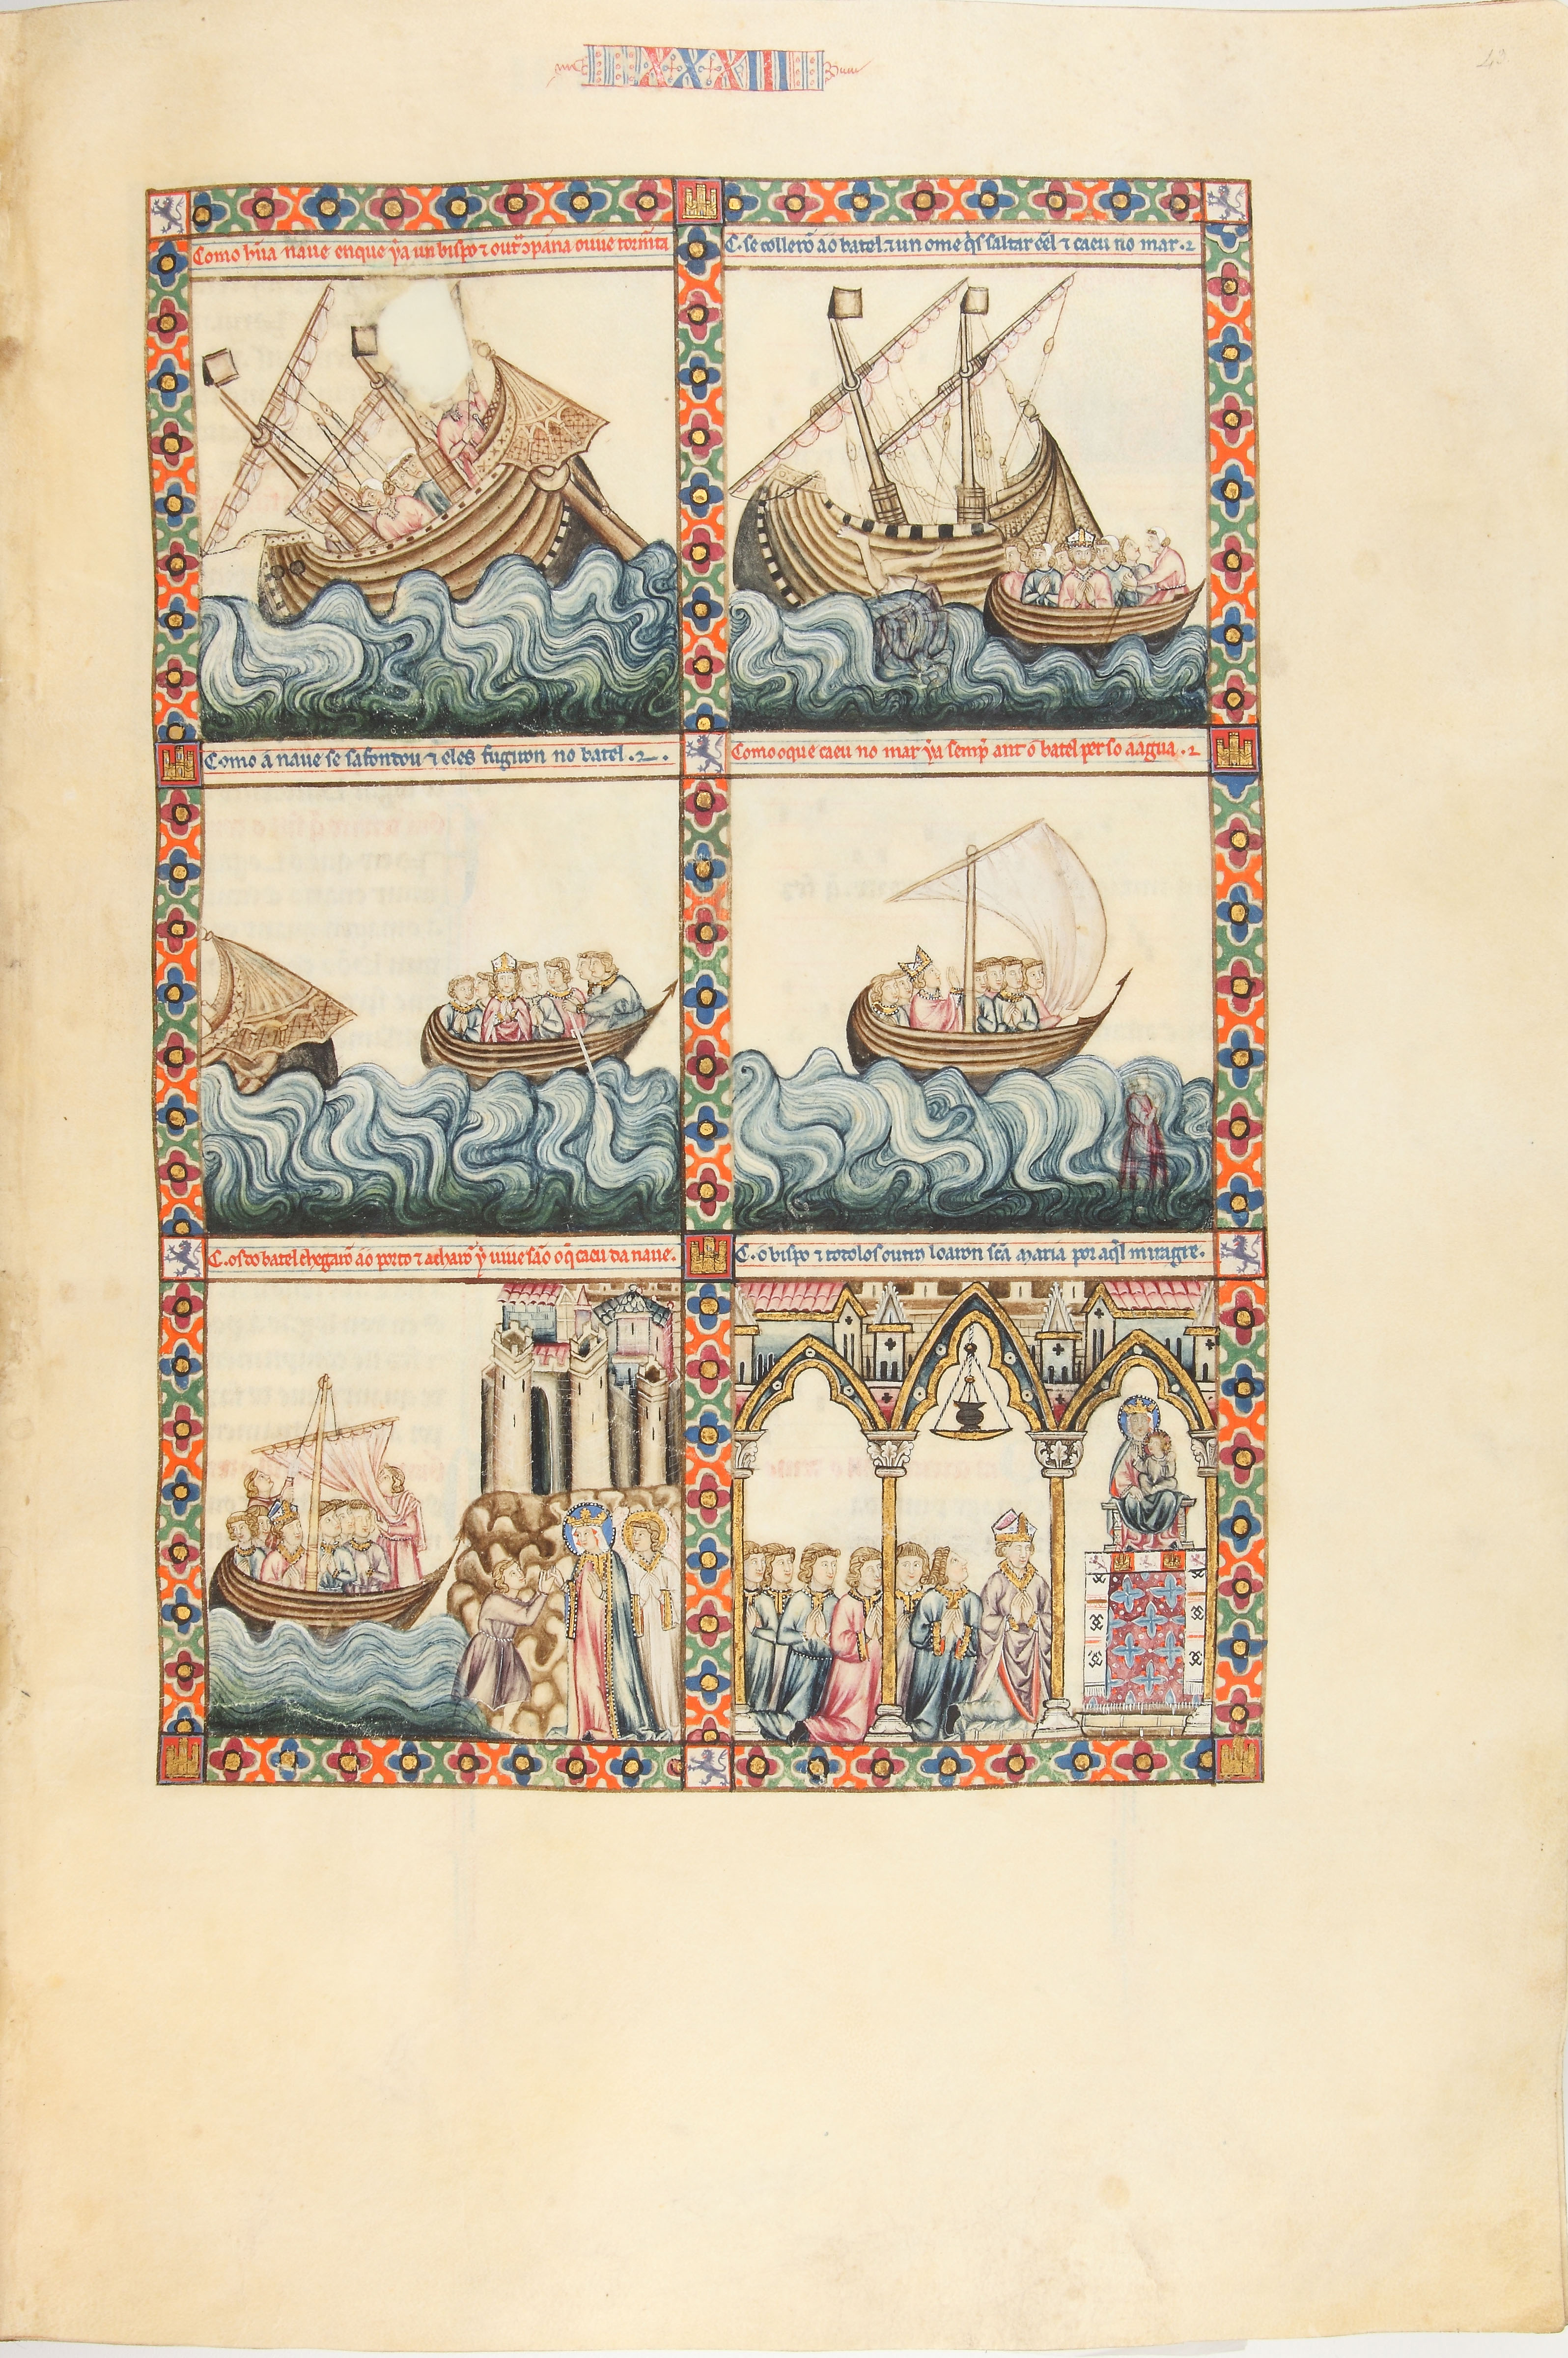 XXXIII
43
Como hũa naue enque ya un bispo ⁊ outͣ ꝯpãna ouue tormẽta
C. se collerõ ao batel ⁊ un ome q̇s saltar cẽl ⁊ caeu no mar.
Como a naue se safondou ⁊ eles fugiron no batel.
Como o que caeu no mar ya semp̃ ant o batel per so a agua.
C. os do batel chegarõ ao porto ⁊ acharõ y uiue são o q̃ caeu da naue.
C. o bispo ⁊ todolos outͦs loaron sc̃a maria por aq̃l miragre.